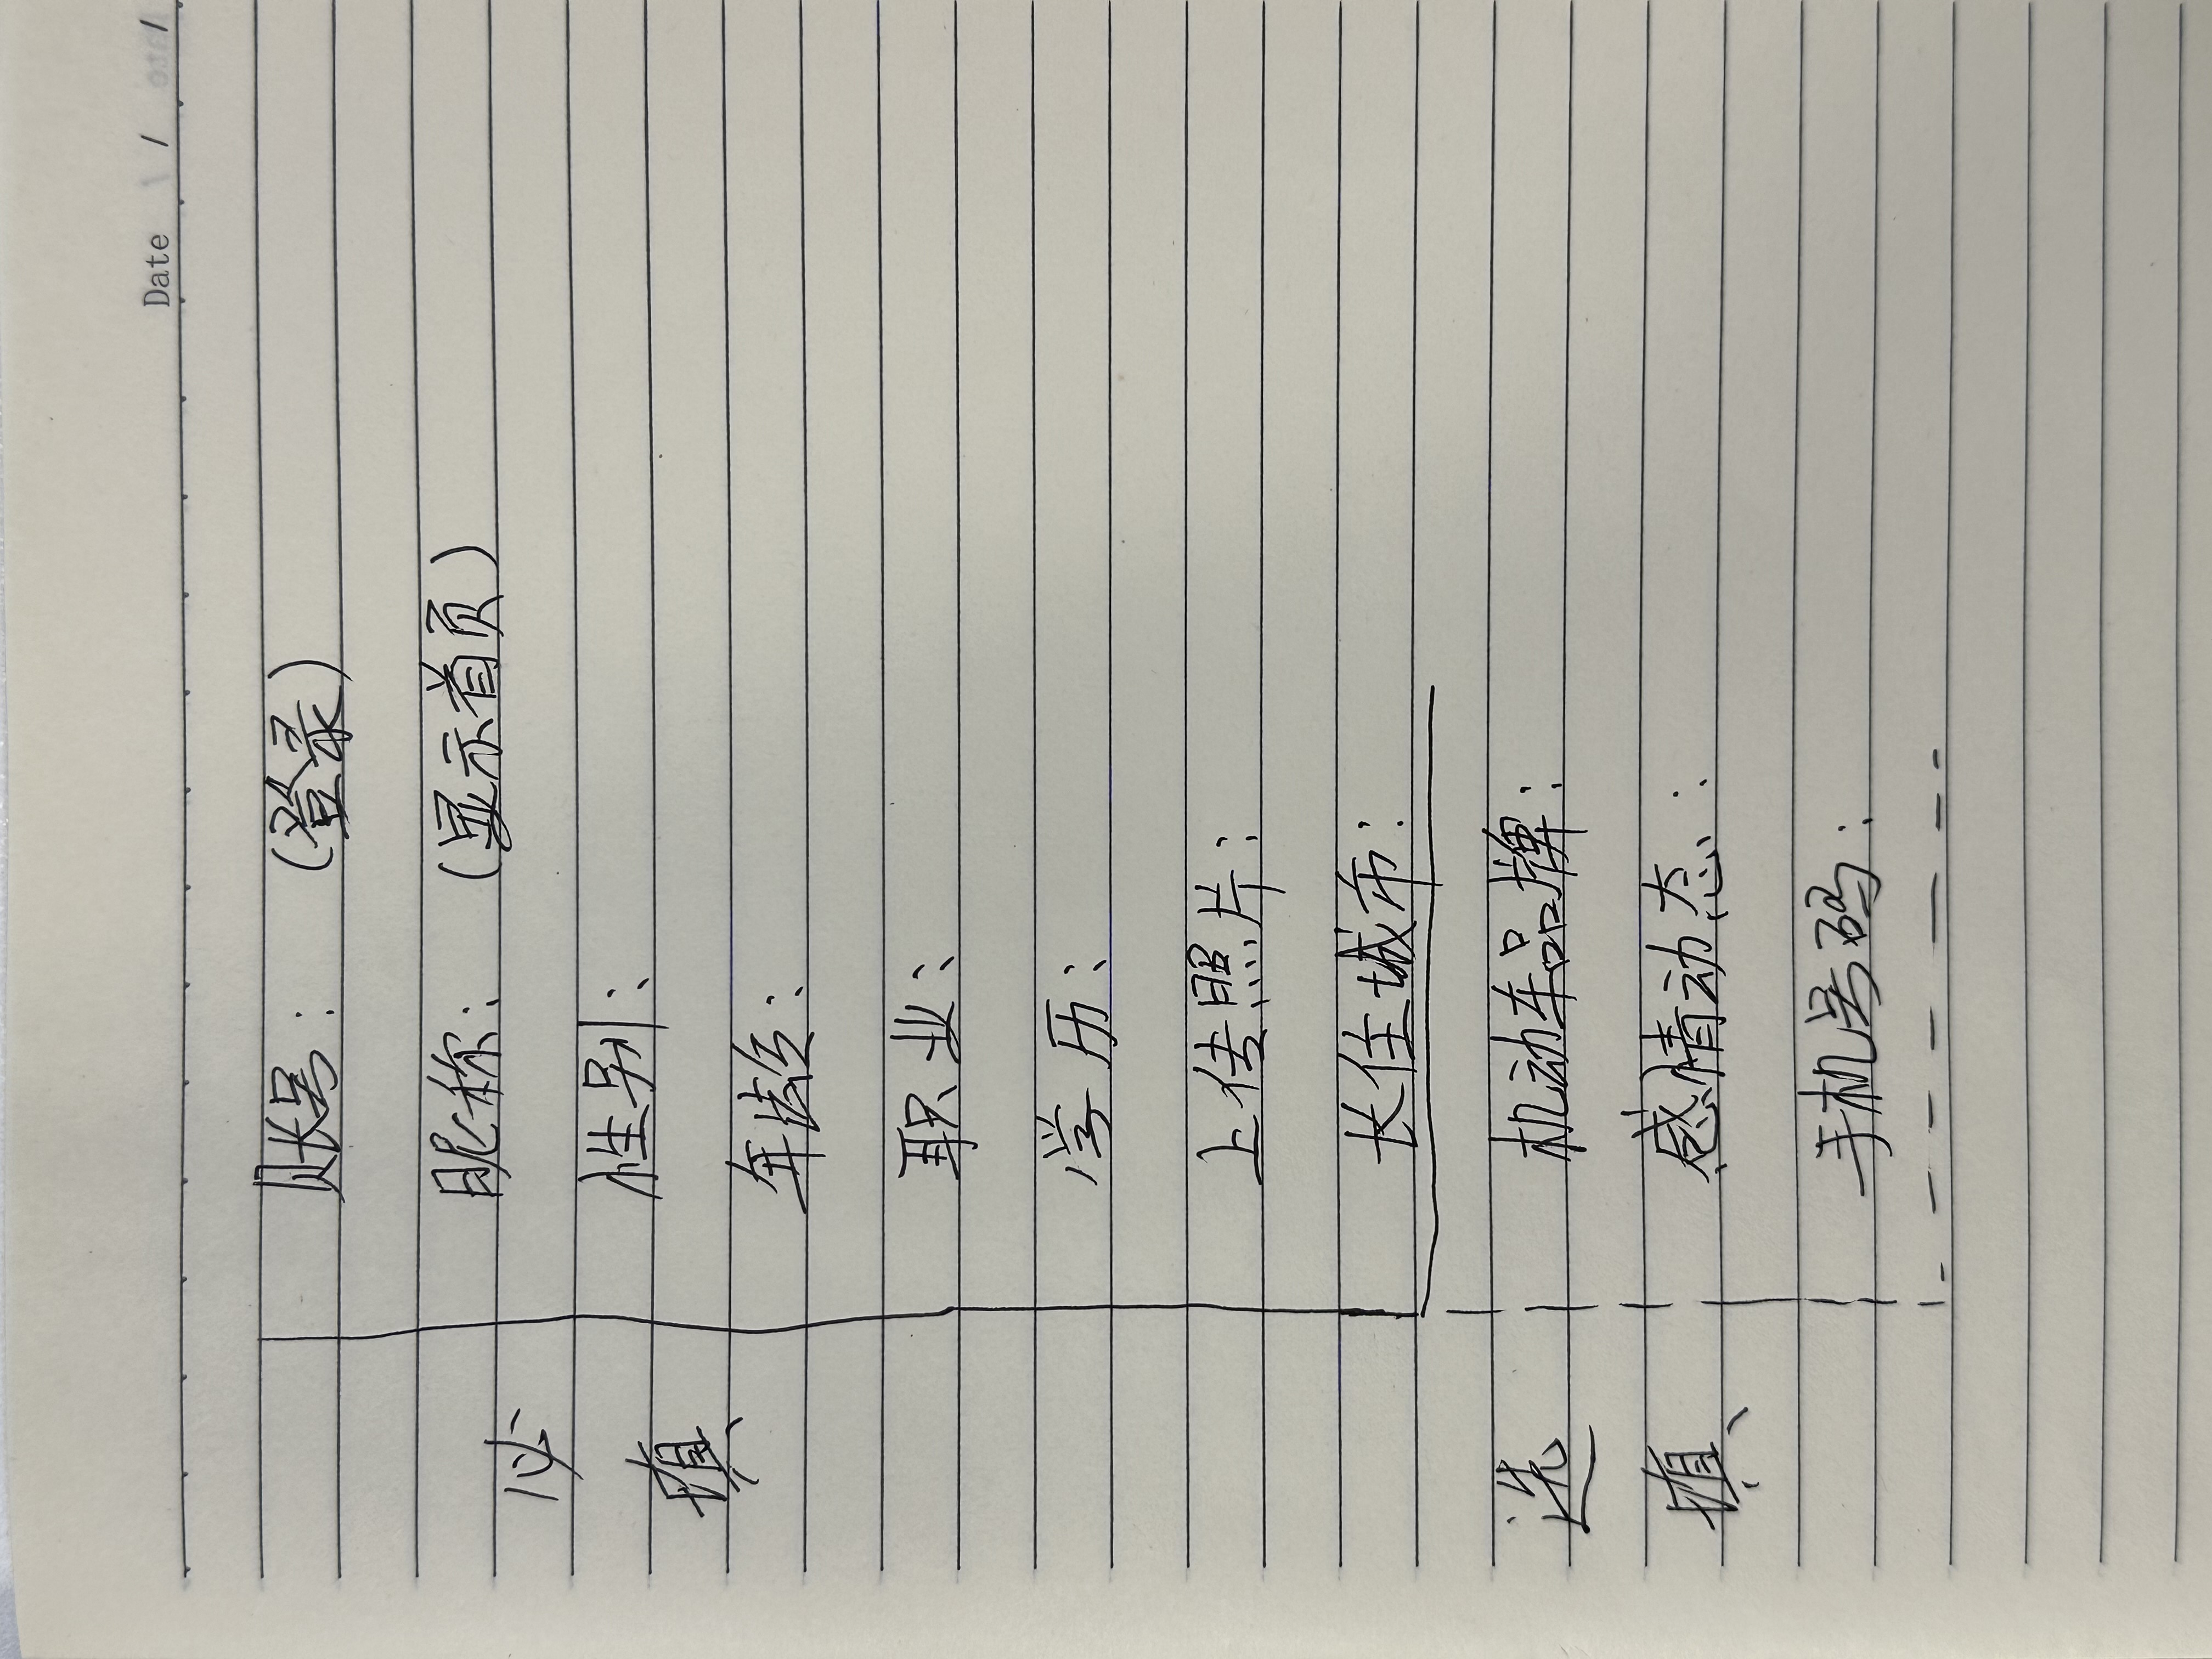 Date / /
账号： （登录）
昵称： （显示首页）
性别：
年龄：
职业：
学历：
上传照片：
长住城市：
机动车品牌：
感情动态：
手机号码：
必填
选填